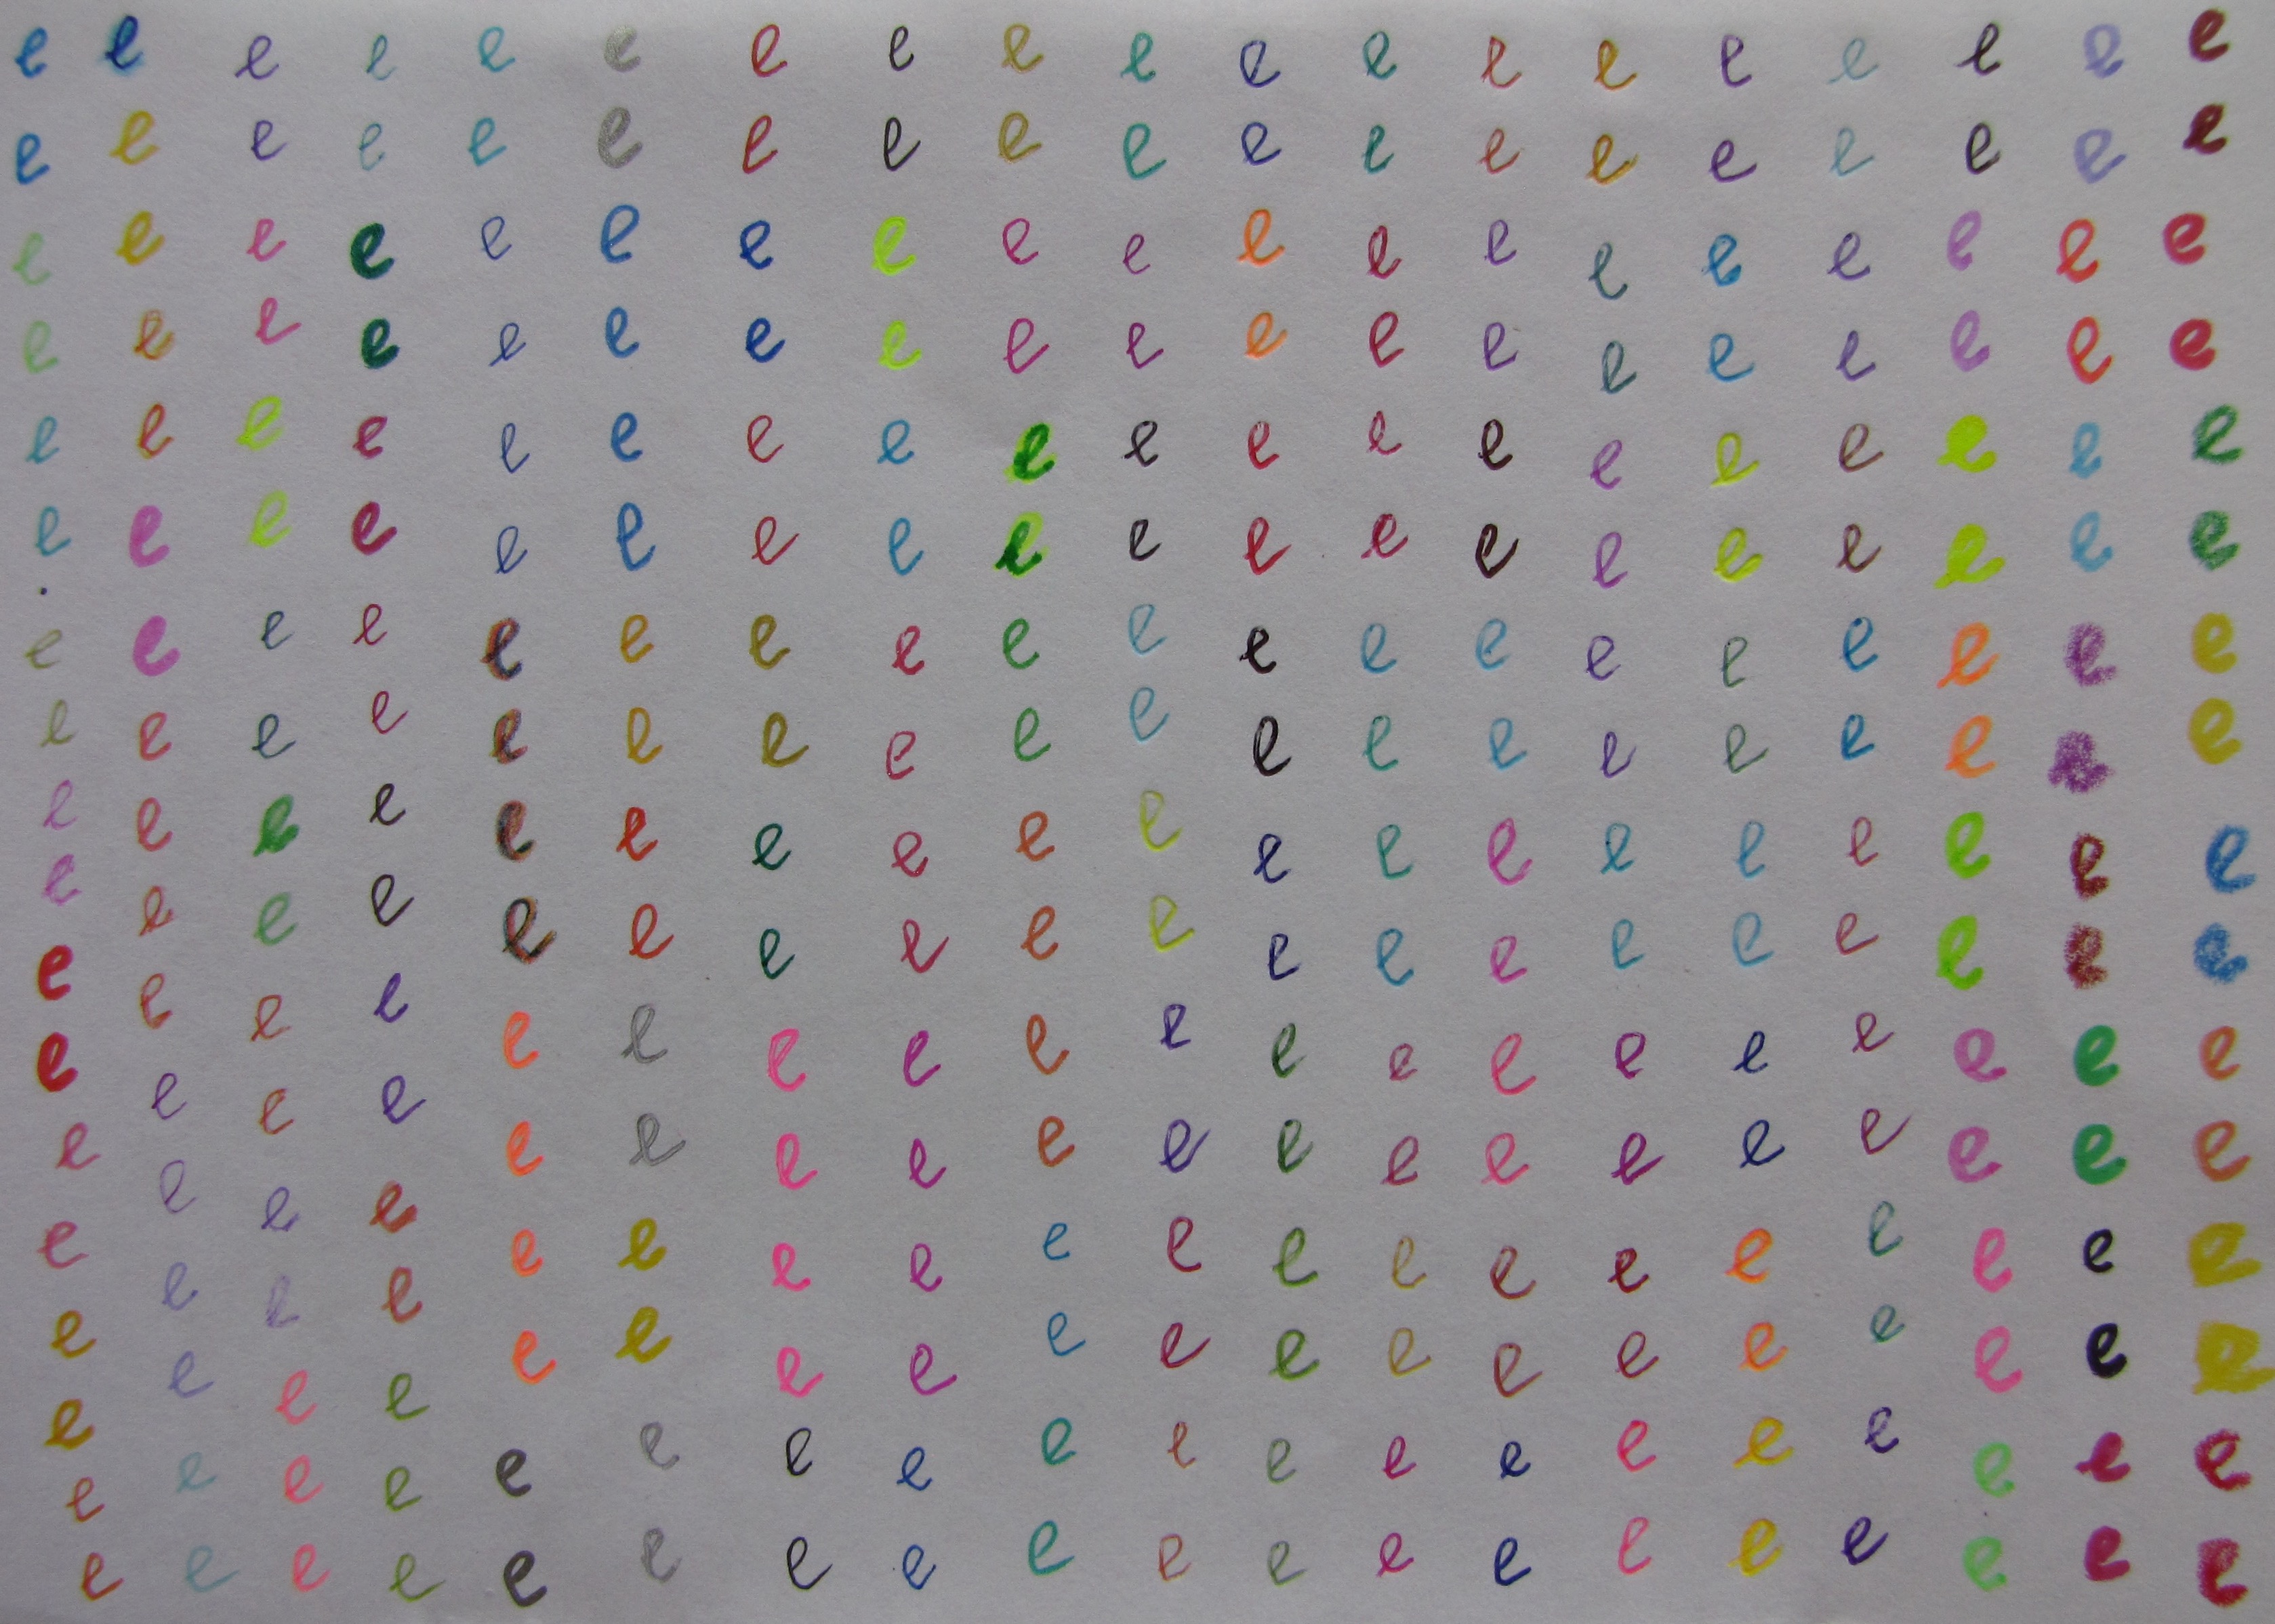 e e e e e e e e e e e e e e e e e e e
e e e e e e e e e e e e e e e e e e e
e e e e e e e e e e e e e e e e e e e
e e e e e e e e e e e e e e e e e e e
e e e e e e e e e e e e e e e e e e e
e e e e e e e e e e e e e e e e e e e
e e e e e e e e e e e e e e e e e e e
e e e e e e e e e e e e e e e e e e e
e e e e e e e e e e e e e e e e e e e
e e e e e e e e e e e e e e e e e e e
e e e e e e e e e e e e e e e e e e e
e e e e e e e e e e e e e e e e e e e
e e e e e e e e e e e e e e e e e e e
e e e e e e e e e e e e e e e e e e e
e e e e e e e e e e e e e e e e e e e
e e e e e e e e e e e e e e e e e e e
e e e e
e